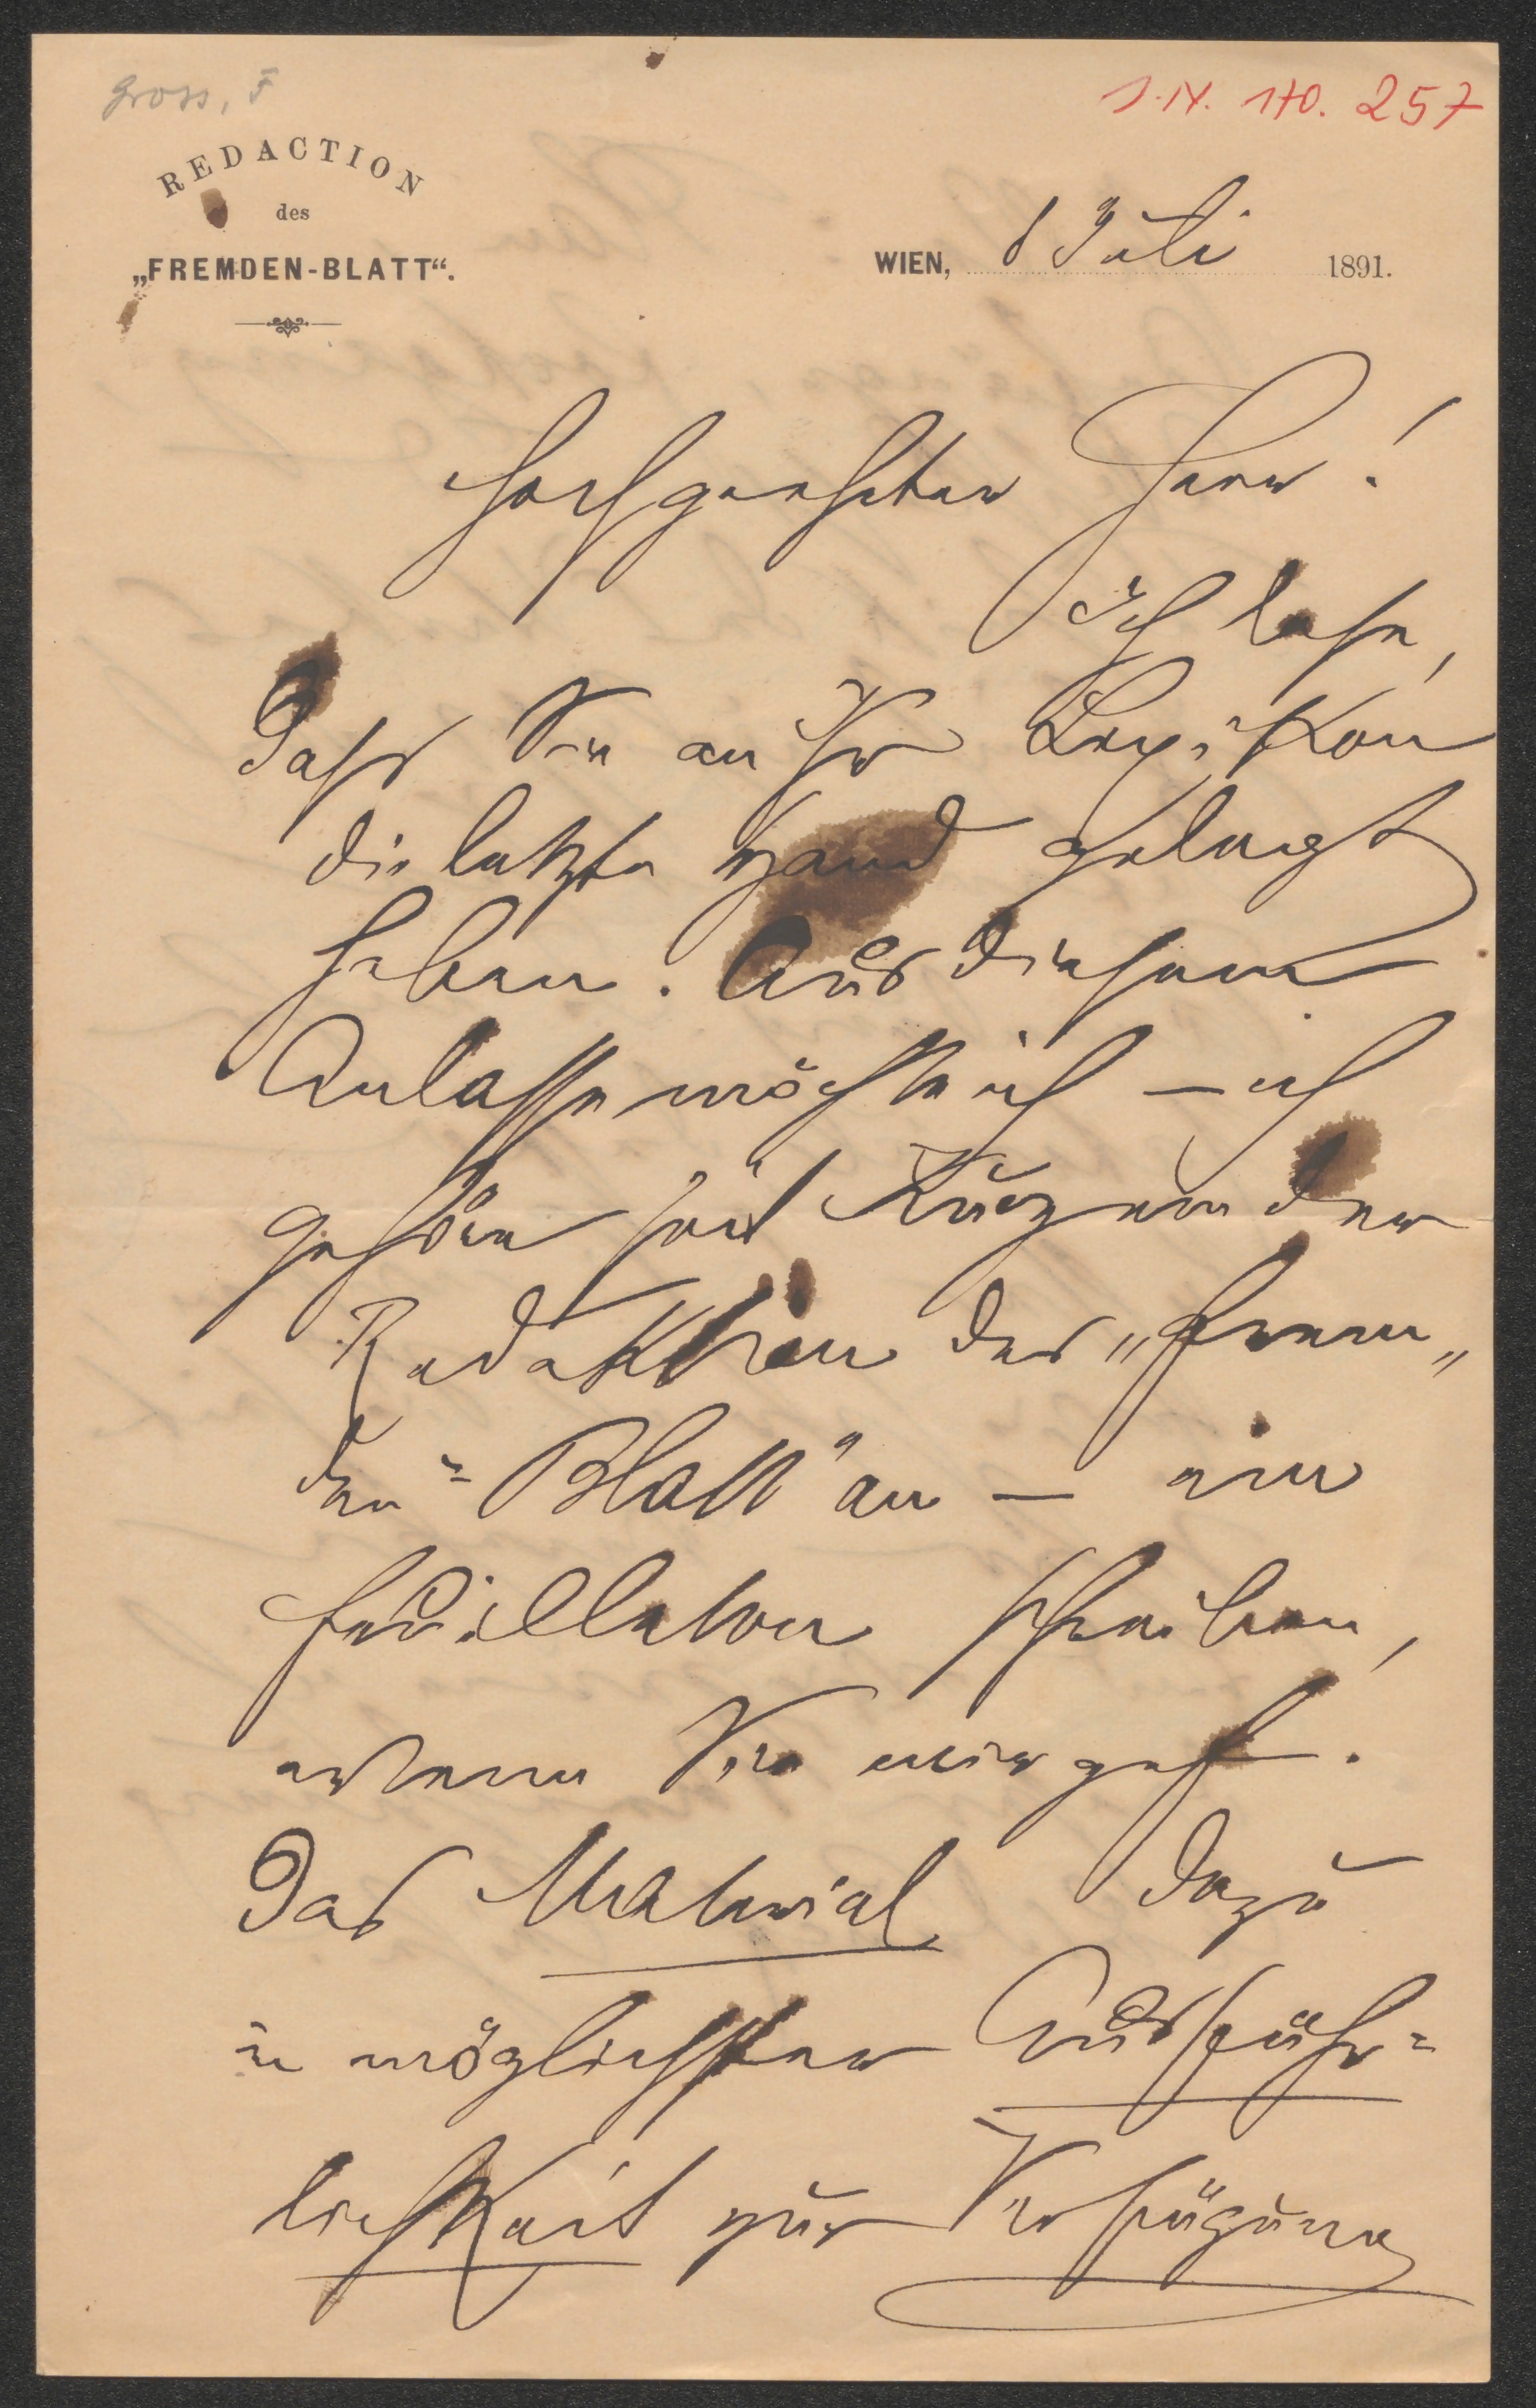 Gross, F
J.N. 170. 257
REDACTION
des
„FREMDEN-BLATT“.
WIEN, 8 Juli 1891.
Hochgeehrter Herr!
Ich lese,
daß Sie an Ihr Lexikon
die letzte Hand gelegt
haben. Aus diesem
Anlasse möchte ich – ich
gehöre seit Kurzem der
Redaktion des „Frem„
den=Blatt“ an – ein
Feuilleton schreiben,
wenn Sie mir gef.
das Material dazu
in möglichster Ausführ=
lichkeit zur Verfügung